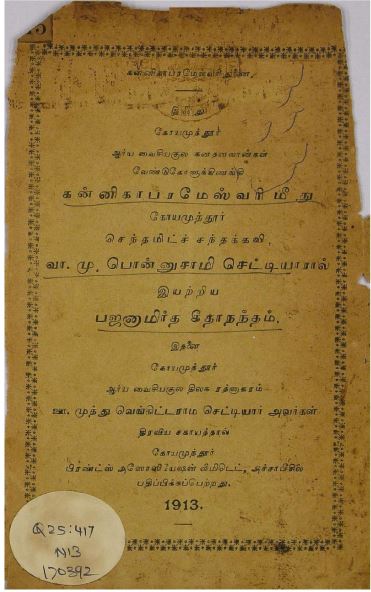 கன்னிகாபரமேஸ்வரி துணை.
இஃது
கோயமுத்தூர்
ஆர்ய வைசியகுல கனதனவான்கள்
வேண்டுகோளுக்கிணங்கி
கன்னிகாபரமேஸ்வரி மீது
கோயமுத்தூர்
செந்தமிட்ச் சந்தக்கவி,
வா. மு. பொன்னுசாமி செட்டியாரால்
இயற்றிய
பஜனாமிர்த கீதாநந்தம்.
இதனை
கோயமுத்தூர்
ஆர்ய வைசியகுல திலக ரத்னாகரம்
ஊ. முத்து வெங்கிட்டராம செட்டியார் அவர்கள்
திரவிய சகாயத்தால்
கோயமுத்தூர்
பிரண்ட்ஸ் அஸோஷியேஷன் லிமிடெட், அச்சாபீசில்
பதிப்பிக்கப்பெற்றது.
1913.
Q25:417
N13
170392